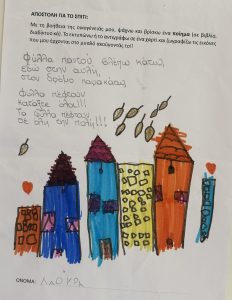 ΑΠΟΣΤΟΛΗ ΓΙΑ ΤΟ ΣΠΙΤΙ:
Με τη βοήθεια της οικογένειάς μου, ψάχνω και βρίσκω ένα ποίημα (σε βιβλίο,
διαδίκτυο κά). Το εκτυπώνω ή το αντιγράφω σε ένα χαρτί και ζωγραφίζω τις εικόνες
που μου έρχονται στο μυαλό ακούγοντάς το!
φύλλα παντού βλέπω κάτω,
εδώ στην αυλή,
στον δρόμο παρακάτω.
φύλλα πέφτουν
κοιτάξτε όλοι!!!
Τα φύλλα πέφτουν
σε όλη την πόλη!!!
ΟΝΟΜΑ: ΛΑΟΥΡΑ